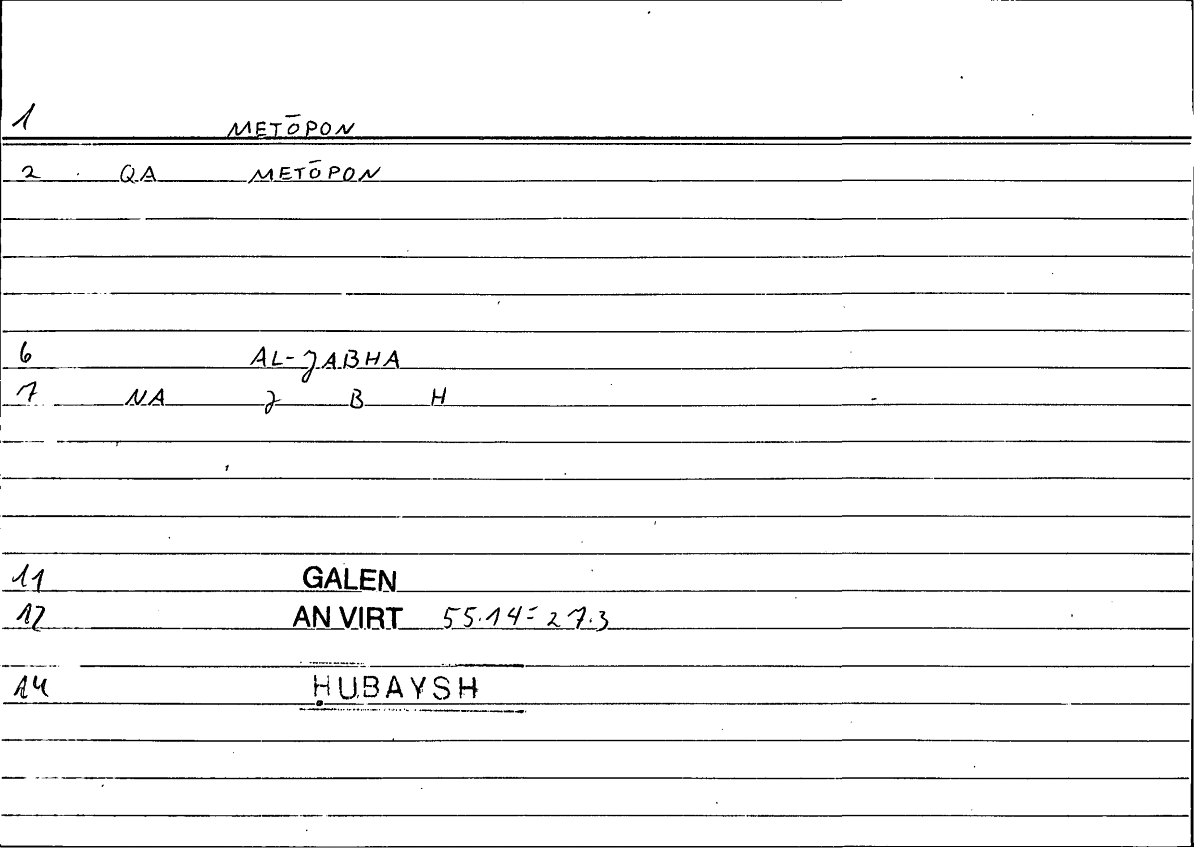 1 METŌPON
2 QA METŌPON
6 AL-JABHA
7 NA J B H
11 GALEN
12 AN VIRT 55.14=27.3
14 ḤUBAYSH